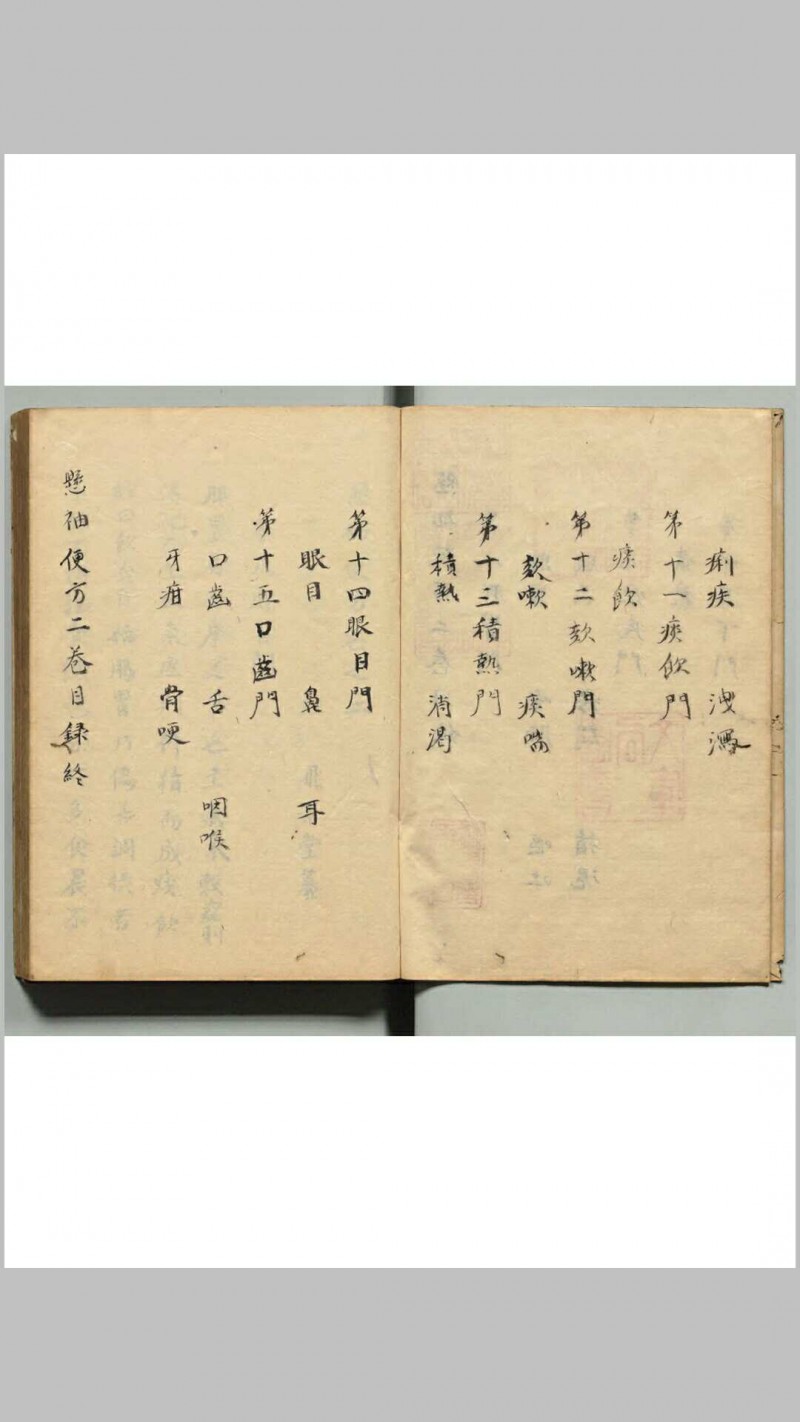 痢疾 洩瀉
第十一痰飲門
痰飲
第十二欬嗽門
欬嗽 痰喘
第十三積熱門
積熱 消渴
第十四眼目門
眼目 鼻 耳
第十五口齒門
口齒 舌 咽喉
牙疳 骨哽
懸袖便方二卷目録終